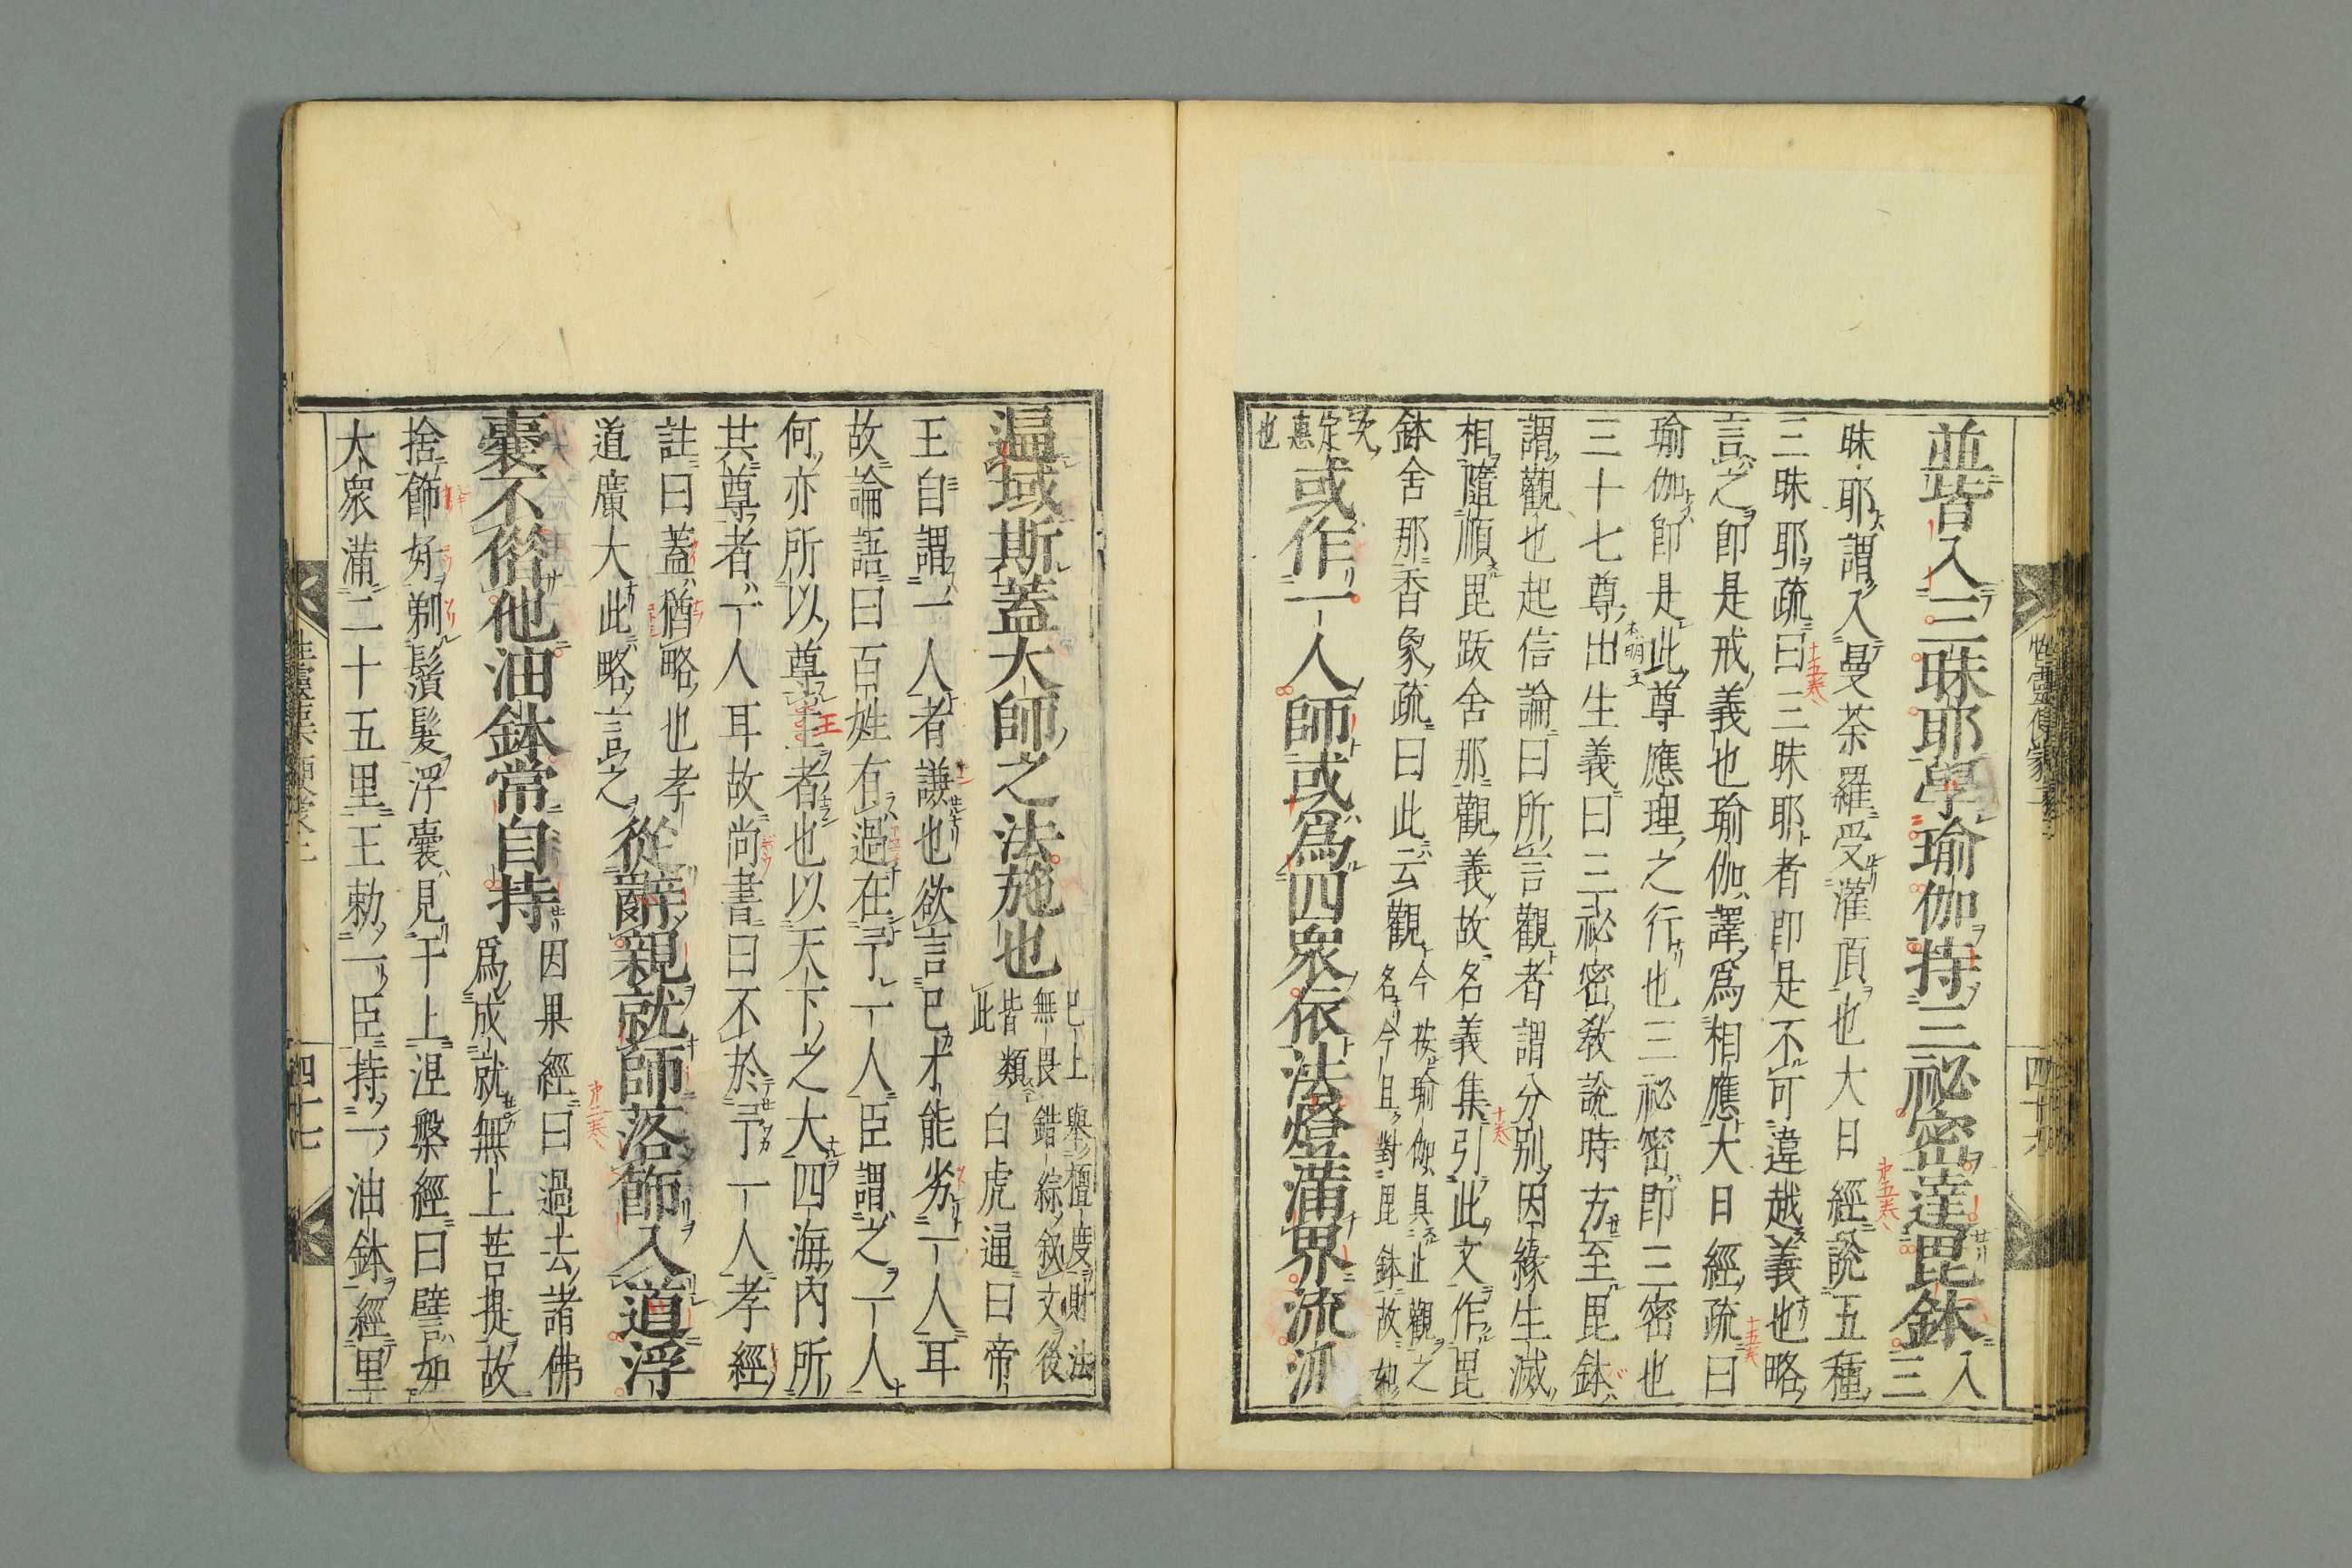 並皆入三昧耶學瑜伽持三祕密達毘鉢入三
昧耶謂入曼荼羅受灌頂也大日經說五種
三昧耶疏曰三昧耶者即是不可違越義也略
言之即是戒義也瑜伽譯爲相應大日經疏曰
瑜伽即是此尊應理之行也三祕密即三密也
三十七尊出生義曰三祕密教說時方至毘鉢
謂觀也起信論曰所言觀者謂分別因緣生滅
相隨順毘跋舍那觀義故名義集引此文作毘
鉢舍那香象疏曰此云觀今按瑜伽具止觀之名今且對毘鉢故
次定惠也或作一人師或爲四衆依法燈滿界流
温域斯蓋大師之法施也已上舉檀度財法無畏錯綜叙文後皆類此
王自謂一人者謙也欲言已才能劣一人耳白虎通曰帝
故論語曰百姓有過在予一人臣謂之一人
何亦所以尊王者也以天下之大四海内所
共尊者一人耳故尚書曰不於予一人孝經
註曰蓋猶略也孝
道廣大此略言之從辭親就師落飾入道浮
囊不借他油鉢常自持因果經曰過去諸佛爲成就無上菩提故
捨飾好剃鬚髮浮囊見于上涅槃經曰譬如
大衆滿二十五里王勅一臣持一油鉢經里